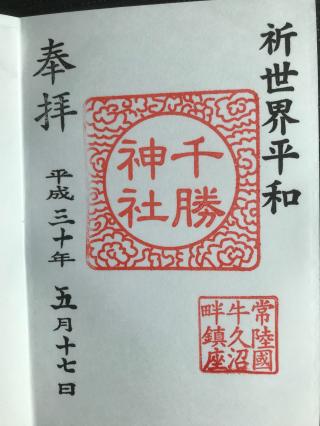 祈世界平和
千勝
神社
常陸國
牛久沼
畔鎮座
奉拝
平成三十年 五月十七日